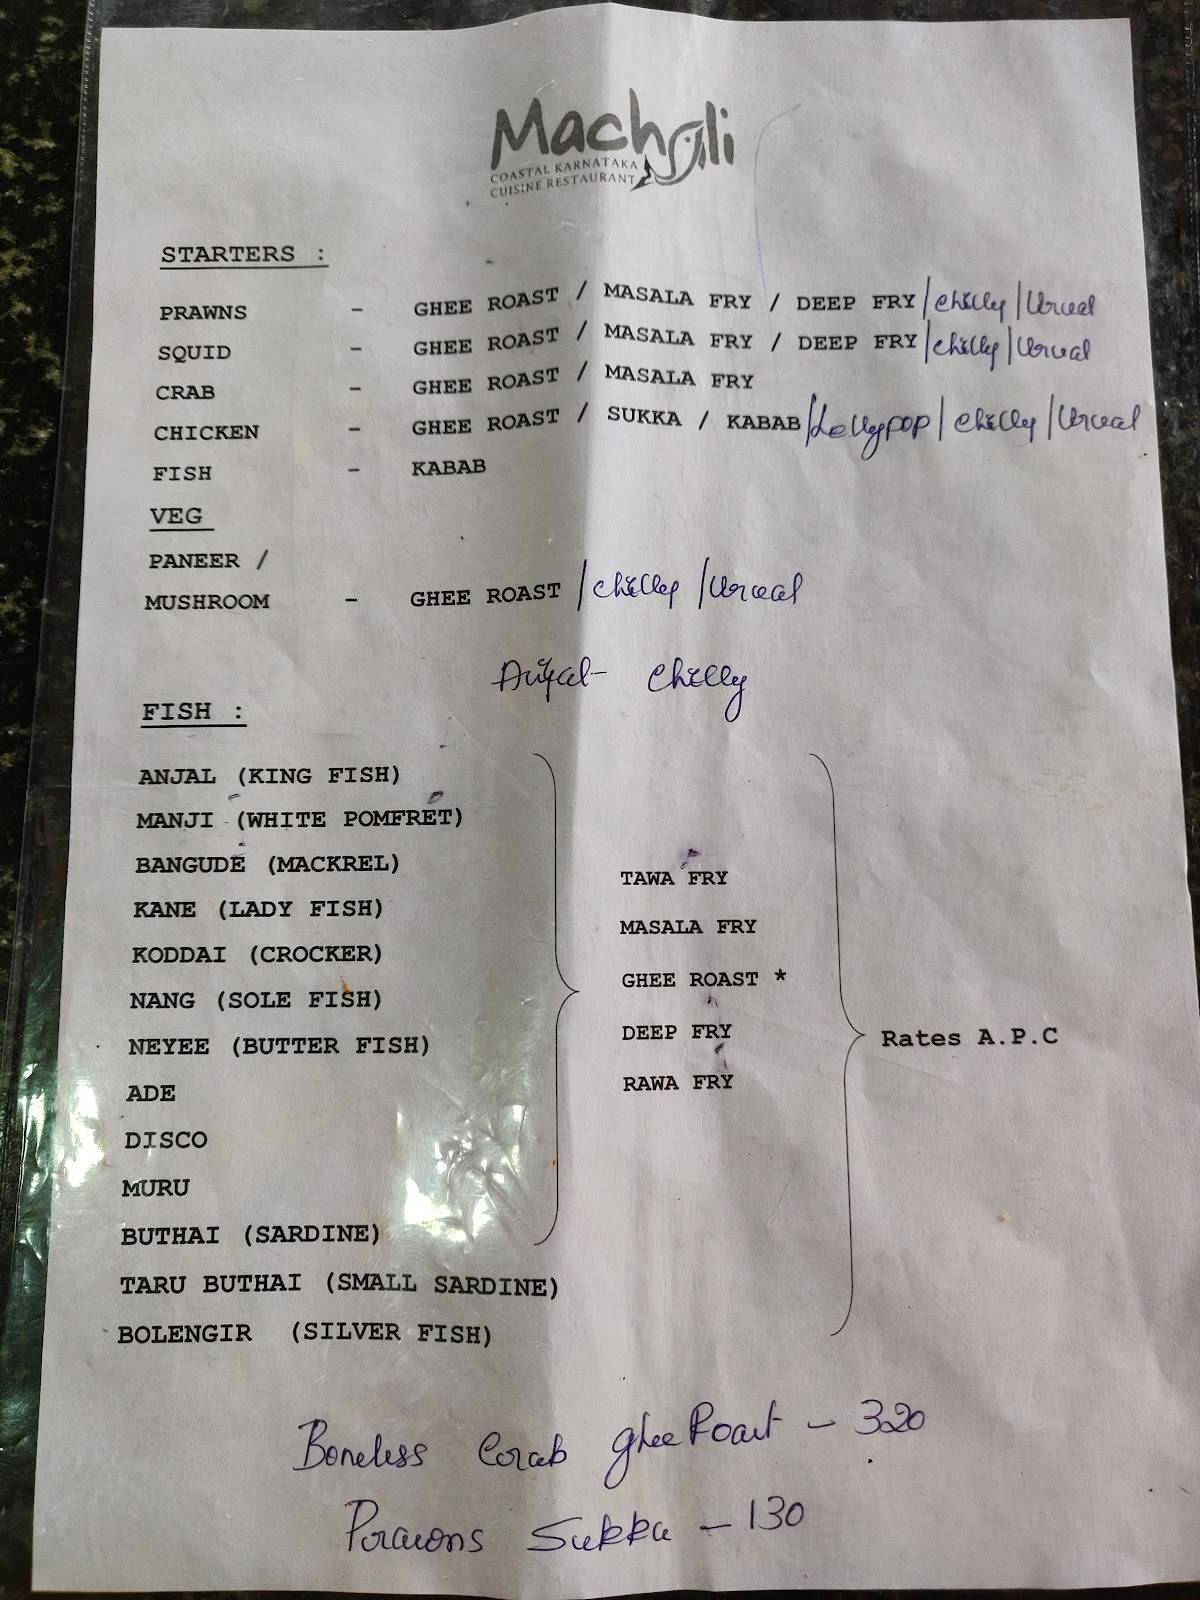 Machali
COASTAL KARNATAKA
CUISINE RESTAURANT
STARTERS :
PRAWNS - GHEE ROAST / MASALA FRY / DEEP FRY / Chilly / Urval
SQUID - GHEE ROAST / MASALA FRY / DEEP FRY / Chilly / Urval
CRAB - GHEE ROAST / MASALA FRY
CHICKEN - GHEE ROAST / SUKKA / KABAB / Lollypop / Chilly / Urval
FISH - KABAB
VEG
PANEER /
MUSHROOM - GHEE ROAST / Chilly / Urval
Anjal- Chilly
FISH :
ANJAL (KING FISH)
MANJI (WHITE POMFRET)
BANGUDE (MACKREL)
KANE (LADY FISH)
KODDAI (CROCKER)
NANG (SOLE FISH)
NEYEE (BUTTER FISH)
ADE
DISCO
MURU
BUTHAI (SARDINE)
TARU BUTHAI (SMALL SARDINE)
BOLENGIR (SILVER FISH)
TAWA FRY
MASALA FRY
GHEE ROAST *
DEEP FRY
RAWA FRY
Rates A.P.C
Boneless Crab ghee Roast - 320
Prawns Sukka - 130